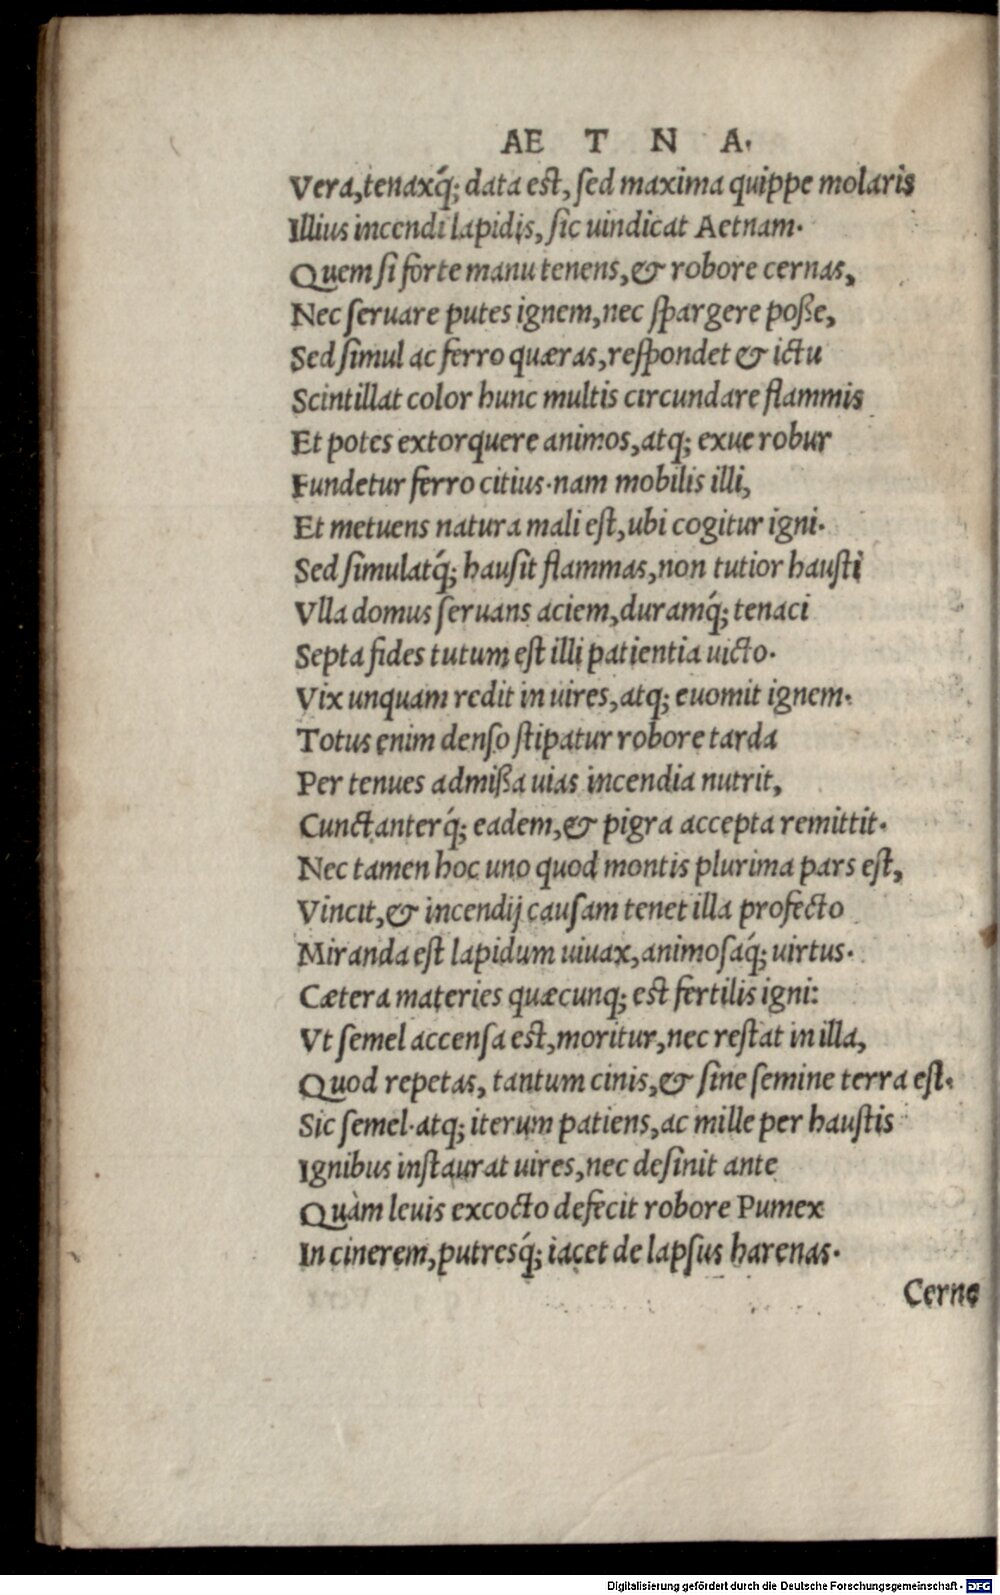 AE T N A.
Vera, tenaxq́; data est, sed maxima quippe molaris
Illius incendi lapidis, sic uindicat Aetnam.
Quem si forte manu tenens, & robore cernas,
Nec seruare putes ignem, nec spargere posse,
Sed simul ac ferro quæras, respondet & ictu
Scintillat color hunc multis circundare flammis
Et potes extorquere animos, atq; exue robur
Fundetur ferro citius. nam mobilis illi,
Et metuens natura mali est, ubi cogitur igni.
Sed simulatq́; hausit flammas, non tutior hausti
Vlla domus seruans aciem, duramq́; tenaci
Septa fides tutum est illi patientia uicto.
Vix unquam redit in uires, atq; euomit ignem.
Totus enim denso stipatur robore tarda
Per tenues admissa uias incendia nutrit,
Cunctanterq́; eadem, & pigra accepta remittit.
Nec tamen hoc uno quod montis plurima pars est,
Vincit, & incendij causam tenet illa profecto
Miranda est lapidum uiuax, animosaq́; uirtus.
Cætera materies quæcunq; est fertilis igni:
Vt semel accensa est, moritur, nec restat in illa,
Quod repetas, tantum cinis, & sine semine terra est.
Sic semel. atq; iterum patiens, ac mille per haustis
Ignibus instaurat uires, nec desinit ante
Quàm leuis excocto defecit robore Pumex
In cinerem, putresq́; iacet de lapsus harenas.
Cerne
Digitalisierung gefördert durch die Deutsche Forschungsgemeinschaft - DFG